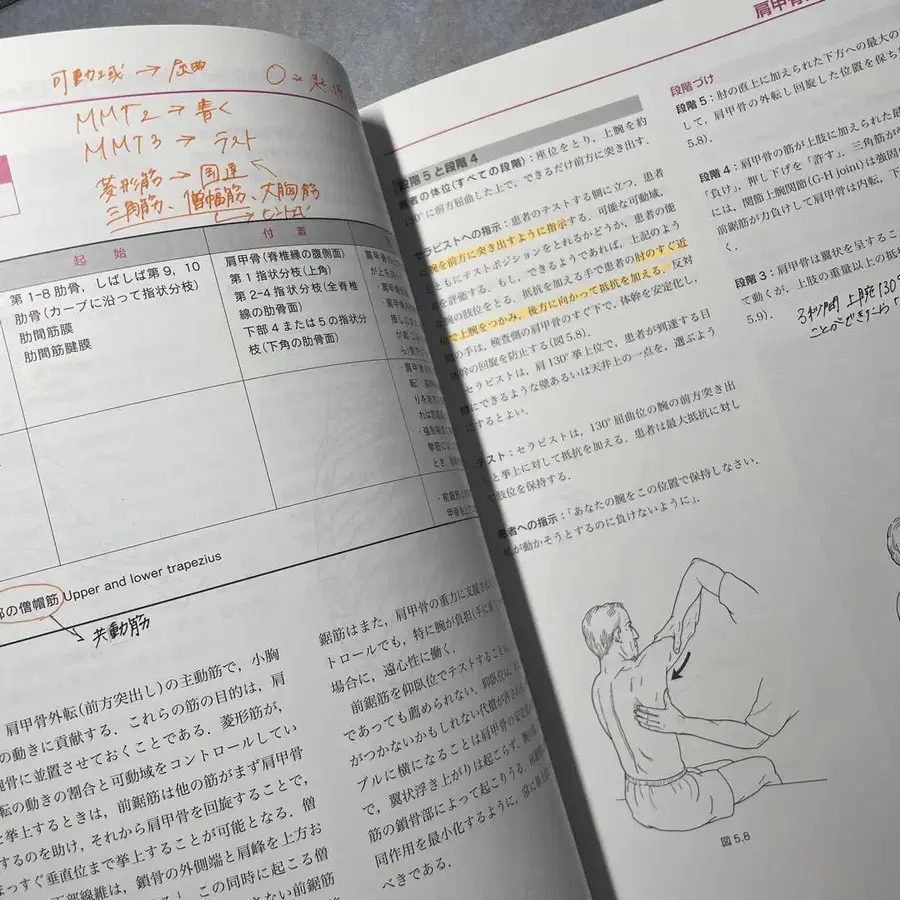 可動域 → 屈曲
MMT2 → 書く
MMT3 → テスト
菱形筋 → 関連
三角筋、僧帽筋、大胸筋
起始
付着
第1-8肋骨，しばしば第9，10
肋骨（カーブに沿って指状分枝）
肋間筋膜
肋間筋腱膜
肩甲骨（脊椎縁の腹側面）
第1指状分枝（上角）
第2-4指状分枝（全脊椎
縁の肋骨面）
下部4または5の指状分
枝（下角の肋骨面）
部の僧帽筋 Upper and lower trapezius
共動筋
肩甲骨外転（前方突出し）の主動筋で，小胸
の動きに貢献する．これらの筋の目的は，肩
骨に並置させておくことである．菱形筋が，
転の動きの割合と可動域をコントロールしてい
と挙上するときは，前鋸筋は他の筋がまず肩甲骨
するのを助け，それから肩甲骨を回旋することで，
まっすぐ垂直位まで挙上することが可能となる．僧
下部線維は，鎖骨の外側端と肩峰を上方お
この同時に起こる僧
ない前鋸筋
鋸筋はまた，肩甲骨の重力に支援され
トロールでも，特に腕が負担（手に
場合に，遠心性に働く．
前鋸筋を仰臥位でテストすること
であっても薦められない．仰臥位は，
がつかないかもしれない代償が許され
ブルに横になることは肩甲骨の安定
で，翼状浮き上がりは起こらず，
筋の鎖骨部によって起こりうる．
同作用を最小化するように，常に
べきである．
肩甲骨
段階5と段階4
患者の体位（すべての段階）：座位をとり，上腕を約
130°に前方屈曲した上で，できるだけ前方に突き出す．
セラピストへの指示：患者のテストする側に立つ．患者
腕を前方に突き出すように指示する．可能な可動域，
ともにテストポジションをとれるかどうか，患者の能
を評価する．もし，できるようであれば，上記のよう
腕の肢位をとる．抵抗を加える手で患者の肘のすぐ近
位で上腕をつかみ，後方に向かって抵抗を加える．反対
の手は，検査側の肩甲骨のすぐ下で，体幹を安定化し，
幹の回旋を防止する（図5.8）．
セラピストは，肩130°挙上位で，患者が到達する目
標にできるような壁あるいは天井上の一点を，選ぶよう
にするとよい．
テスト：セラピストは，130°屈曲位の腕の前方突き出
しと挙上に対して抵抗を加える．患者は最大抵抗に対し
て肢位を保持する．
患者への指示：「あなたの腕をこの位置で保持しなさい．
私が動かそうとするのに負けないように」．
図5.8
段階づけ
段階5：肘の直上に加えられた下方への最大の
して，肩甲骨の外転し回旋した位置を保ち
5.8）．
段階4：肩甲骨の筋が上肢に加えられた最
「負け」，押し下げを「許す」．三角筋が
には，関節上腕関節（G-H joint）は強固
前鋸筋が力負けして肩甲骨は内転，下
く．
段階3：肩甲骨は翼状を呈するこ
て動くが，上肢の重量以上の抵
5.9）．
3秒間 上肢130°
ことができたら